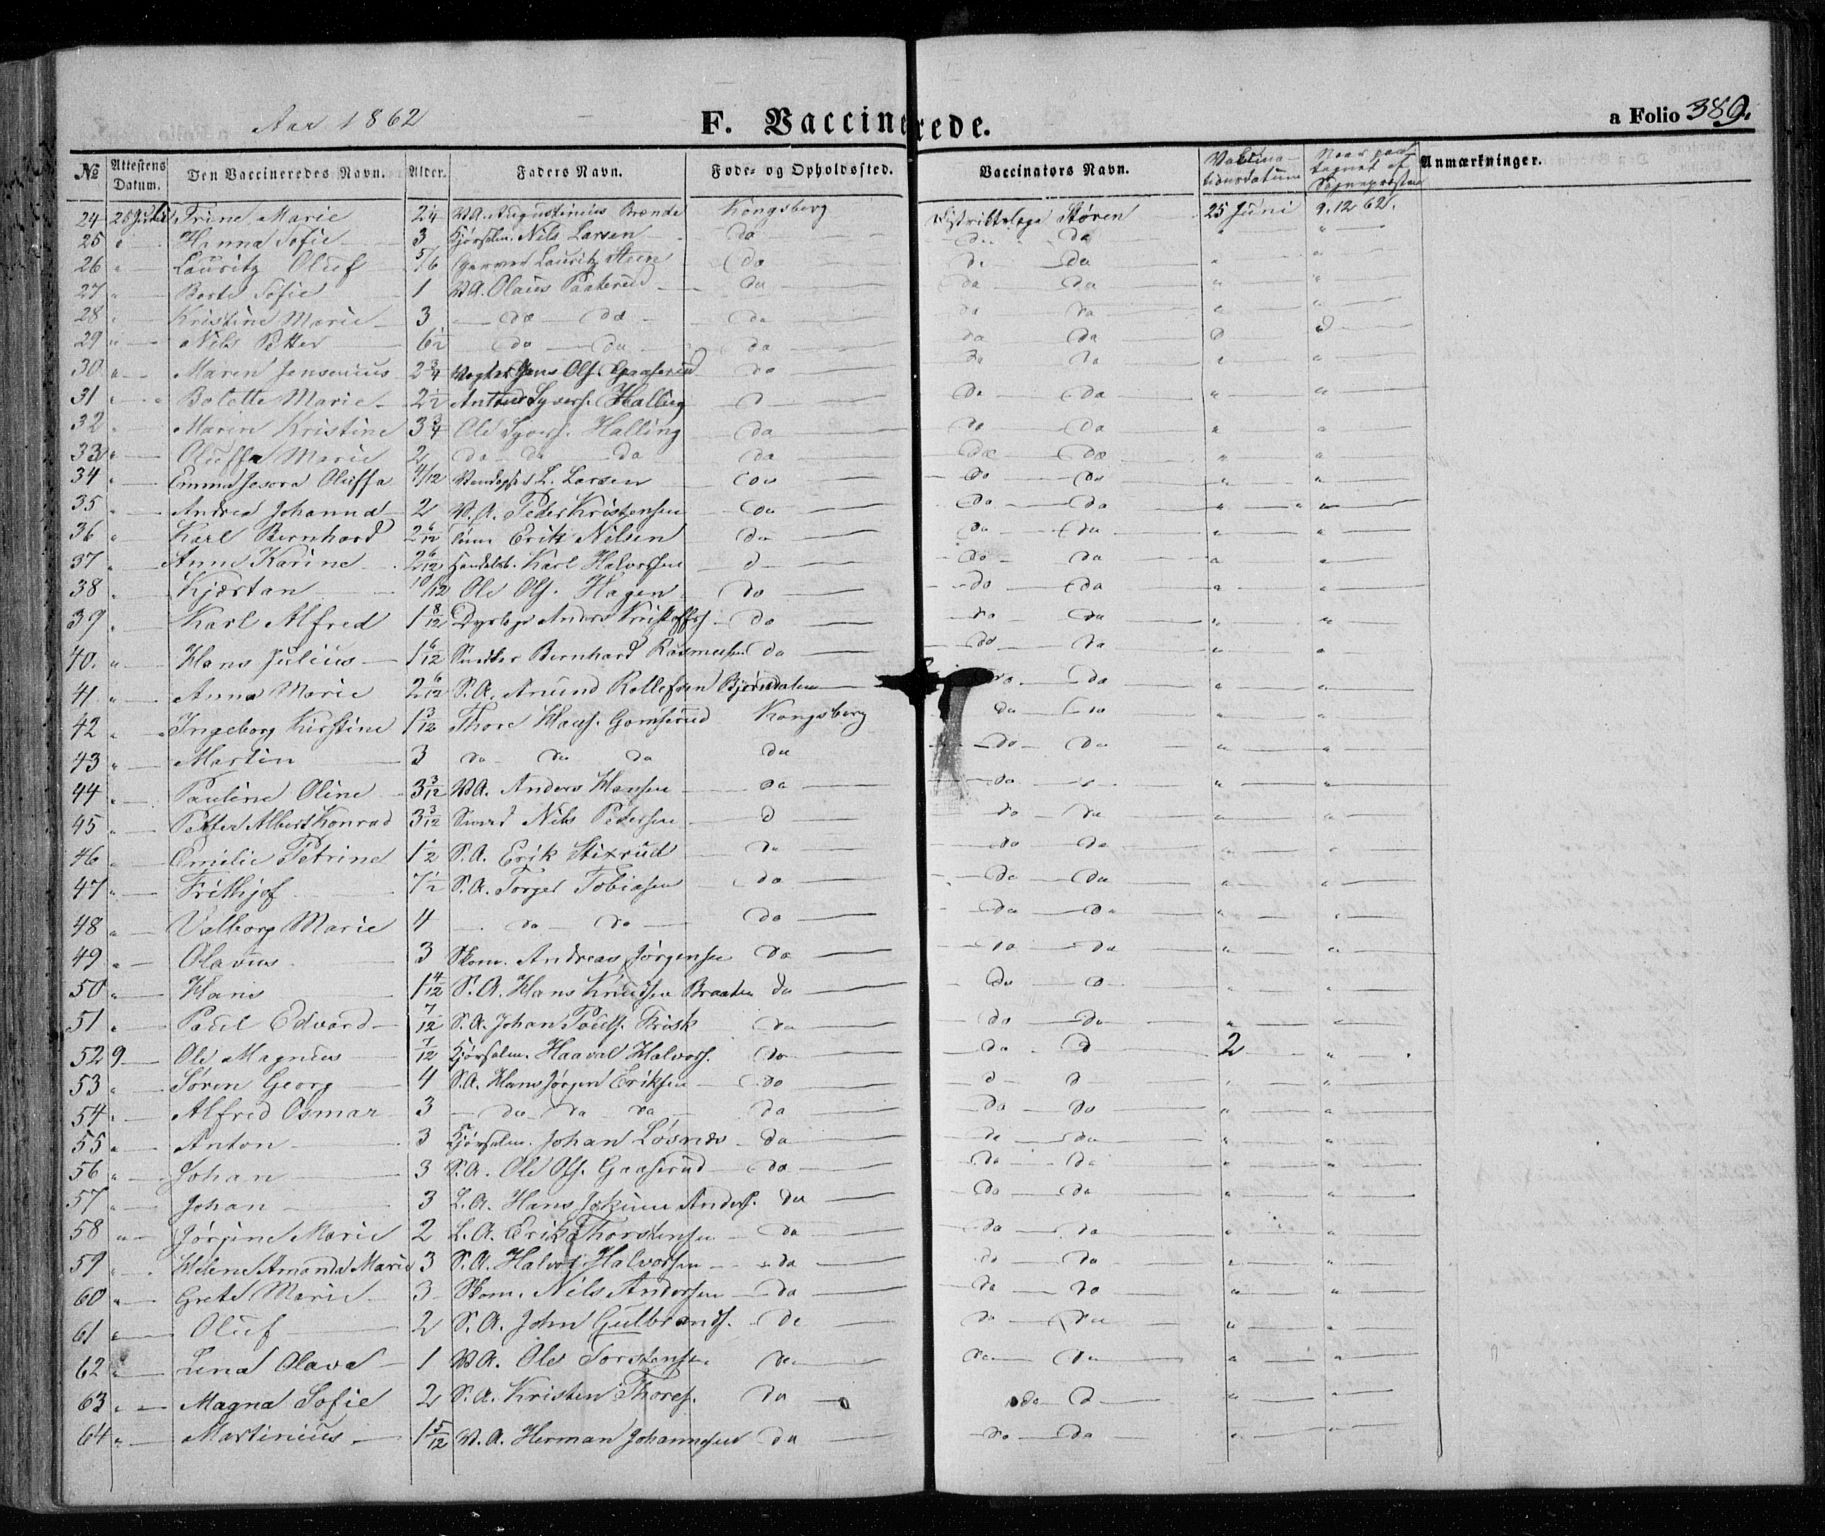 Aar 1862 F. Vaccinerede. a Folio 389.
№ Attestens Datum. Den Vaccineredes Navn. Alder. Faders Navn. Føde- og Opholdssted. Vaccinators Navn. Vaccinationsdatum Naar paategnet af Sognepræsten Anmærkninger.
24 28 Trine Marie 2 1/4 BA. Augustinius Brænde Kongsberg Distriktslæge Støren 25 Juni 9.12 62.
25 " Hanna Sofie 3 Kjørselm. Nils Larsen do do do " "
26 " Lauritz Oluf 5/6 Lauritz Steen do do do " "
27 " Berte Sofie 1 BA. Olaus Paaterud do do do " "
28 " Kristine Marie 3 do do do do do " "
29 " Nils Petter 6 1/2 do do do do do " "
30 " Maren Jensenius 2 3/4 Vægter Jens Ols. Gaaserud do do do " "
31 " Bolette Marie 2 1/2 Syvers. Halling d do do " "
32 " Maren Kristine 3 3/4 Ole Syvers. Halling do do do " "
33 " Oluffa Marie 2 do do do do do do " "
34 " Emma Jesora Oluffa 4/12 L. Larsen do do do " "
35 " Andrea Johanna 2 B.A. Peder Kristensen do do do " "
36 " Karl Bernhard 2 6/12 Erik Nilsen do do do " "
37 " Anne Karine 2 6/12 Handelsb. Karl Halvorsen d do do " "
38 " Kjærtan 10/12 Ole Ols. Hagen do do do " "
39 " Karl Alfred 1 8/12 Dyrlæge Anders Kristoffers. do do do " "
40. " Hans Julius 1 6/12 Snedker Bernhard Rasmussen do do do " "
41 " Anna Marie 2 6/12 S.A. Amund Rollefsen Bjørndalen do do " "
42 " Ingeborg Kirstine 1 3/12 Thore Haas. Gomserud Kongsberg do do " "
43 " Martin 3 do do do do do do " "
44 " Pauline Oline 3 3/12 BA. Anders Hansen do do " "
45 " Petter Albert Konrad 3 3/12 Nils Pedersen d do do " "
46 " Emilie Petrine 1 1/2 S.A. Erik Stixrud do do do " "
47 " Frithjof 7 1/2 S.A. Torger Tobiasen do do do " "
48 " Valborg Marie 4 do do do do do " "
49 " Olavus 3 Skom. Andreas Jørgensen do do do " "
50 " Hans 1 4/12 S.A. Hans Knudsen Braaten do do do " "
51 " Paul Edvard 7/12 S.A. Johan Pauls. Frisk do do do " "
52 9 Ole Magnus 7/12 Kjørselm. Haavel Halvors. do do d 2 "
53 " Søren Georg 4 S.A. Hans Jørgen Eriksen do d d " "
54 " Alfred Osmar 3 do do do do do do " "
55 " Anton 3 Kjørselm. Johan Løsnæs do do do " "
56 " Johan 3 S.A. Ole Ols. Gaaserud do do do " "
57 " Johan 3 L.A. Hans Jokum Anders. do do do " "
58 " Jørgine Marie 2 L.A. Erik Thorstensen do do do " "
59 " Helene Amanda Marie 3 S.A. Halvor Halvorsen do do do " "
60 " Grete Marie 3 Skom. Nils Andersen do do do " "
61 " Oluf 2 S.A. John Gulbrands. do do do " "
62 " Lina Olava 1 BA. Ole Torstensen do do do " "
63 " Magna Sofie 2 S.A. Kristen Thores. do do d " "
64 " Martinius 1 5/12 B.A. Herman Johannesen do do do " "